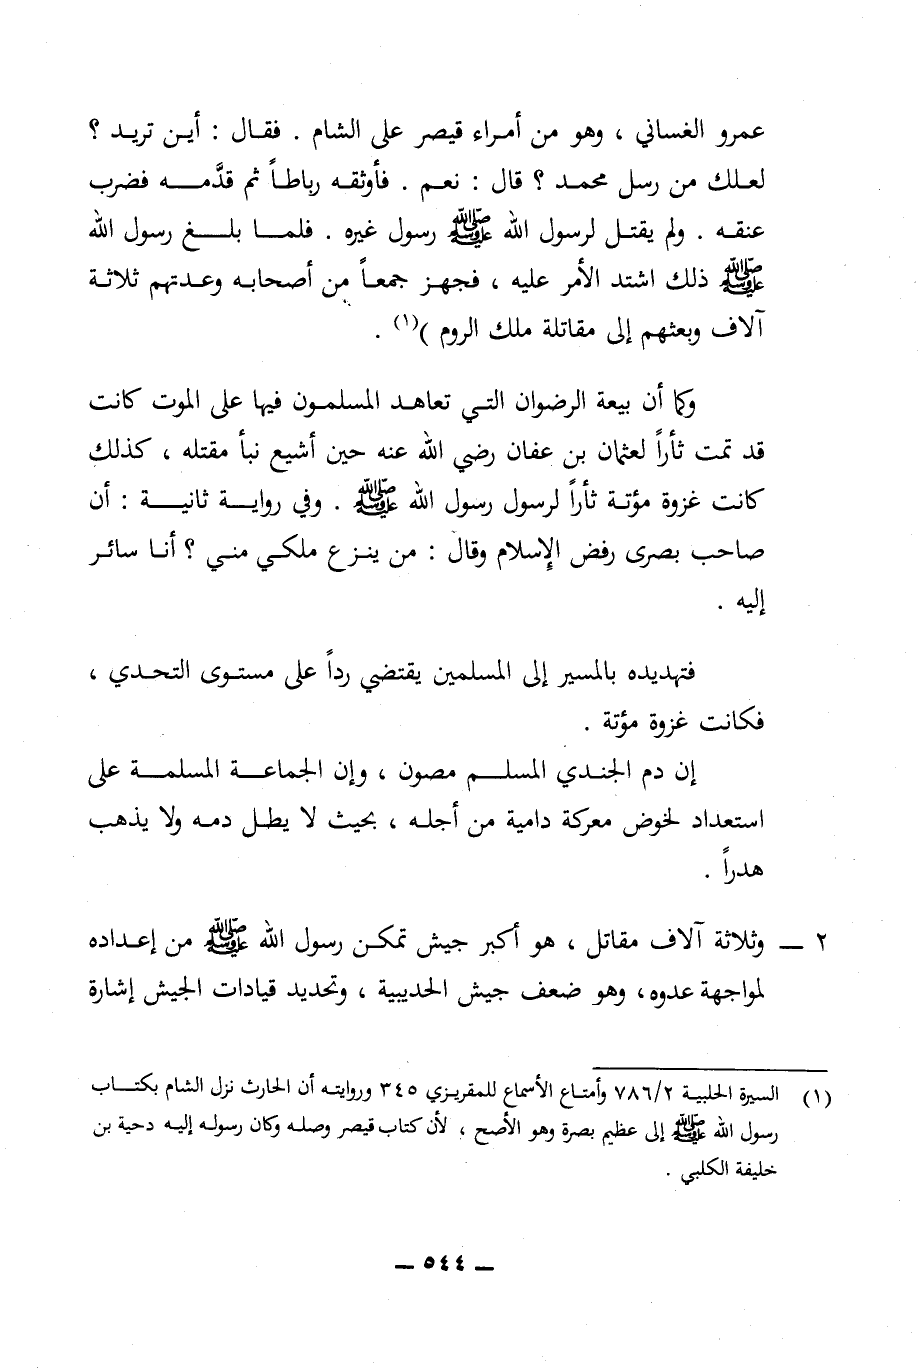 عمرو الغساني ، وهو من أمراء قيصر على الشام . فقال : أين تريد ؟
لعلك من رسل محمد ؟ قال : نعم . فأوثقه رباطاً ثم قدَّمه فضرب
عنقه . ولم يقتل لرسول الله ﷺ رسول غيره . فلما بلغ رسول الله
ﷺ ذلك اشتد الأمر عليه ، فجهز جمعاً من أصحابه وعدتهم ثلاثة
آلاف وبعثهم إلى مقاتلة ملك الروم )(١) .
وكما أن بيعة الرضوان التي تعاهد المسلمون فيها على الموت كانت
قد تمت ثأراً لعثمان بن عفان رضي الله عنه حين أشيع نبأ مقتله ، كذلك
كانت غزوة مؤتة ثأراً لرسول رسول الله ﷺ . وفي رواية ثانية : أن
صاحب بصرى رفض الإسلام وقال : من ينزع ملكي مني ؟ أنا سائر
إليه .
فتهديده بالمسير إلى المسلمين يقتضي رداً على مستوى التحدي ،
فكانت غزوة مؤتة .
إن دم الجندي المسلم مصون ، وإن الجماعة المسلمة على
استعداد لخوض معركة دامية من أجله ، بحيث لا يطل دمه ولا يذهب
هدراً .
٢ ـ وثلاثة آلاف مقاتل ، هو أكبر جيش تمكن رسول الله ﷺ من إعداده
لمواجهة عدوه، وهو ضعف جيش الحديبية ، وتحديد قيادات الجيش إشارة
(١) السيرة الحلبية ٧٨٦/٢ وأمتاع الأسماع للمقريزي ٣٤٥ وروايته أن الحارث نزل الشام بكتاب
رسول الله ﷺ إلى عظيم بصرة وهو الأصح ، لأن كتاب قيصر وصله وكان رسوله إليه دحية بن
خليفة الكلبي .
ـ ٥٤٤ ـ